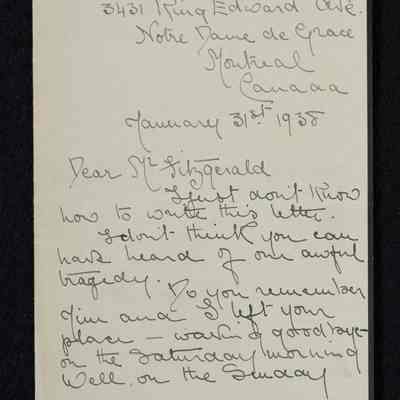 3431 King Edward Ave.
Notre Dame de Grace
Montreal
Canada
January 31st 1938
Dear Mr Fitzgerald
I just don't know
how to write this letter.
I don't think you can
have heard of our awful
tragedy.
Do you remember
Jim and I left your
place — waving goodbye
on the Saturday morning
Well, on the Sunday